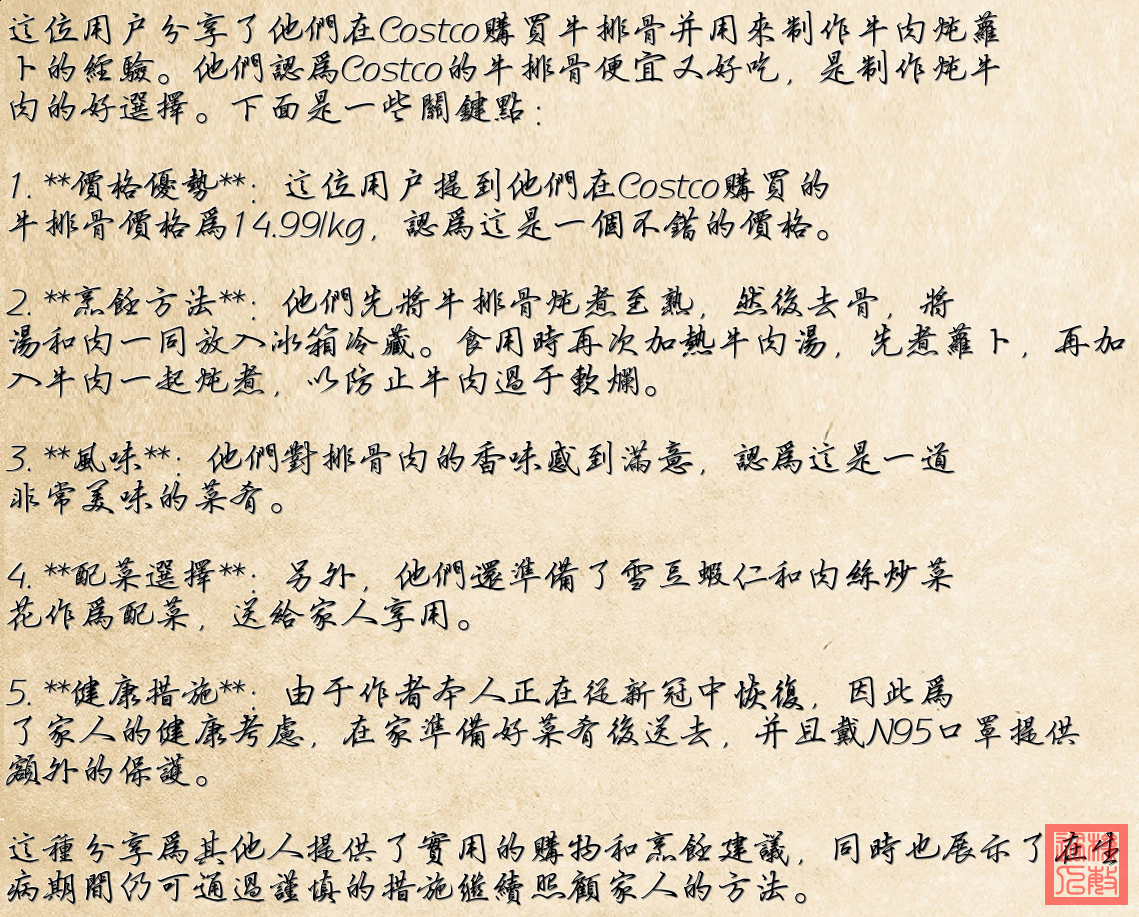 這位用户分享了他們在Costco購買牛排骨并用來制作牛肉炖蘿
卜的經驗。他們認爲Costco的牛排骨便宜又好吃，是制作炖牛
肉的好選擇。下面是一些關鍵點：
1. **價格優勢**：這位用户提到他們在Costco購買的
牛排骨價格爲14.99/kg，認爲這是一個不錯的價格。
2. **烹飪方法**：他們先將牛排骨炖煮至熟，然後去骨，將
湯和肉一同放入冰箱冷藏。食用時再次加熱牛肉湯，先煮蘿卜，再加
入牛肉一起炖煮，以防止牛肉過于軟爛。
3. **風味**：他們對排骨肉的香味感到滿意，認爲這是一道
非常美味的菜肴。
4. **配菜選擇**：另外，他們還準備了雪豆蝦仁和肉絲炒菜
花作爲配菜，送給家人享用。
5. **健康措施**：由于作者本人正在從新冠中恢復，因此爲
了家人的健康考慮，在家準備好菜肴後送去，并且戴N95口罩提供
額外的保護。
這種分享爲其他人提供了實用的購物和烹飪建議，同時也展示了在生
病期間仍可通過謹慎的措施繼續照顧家人的方法。